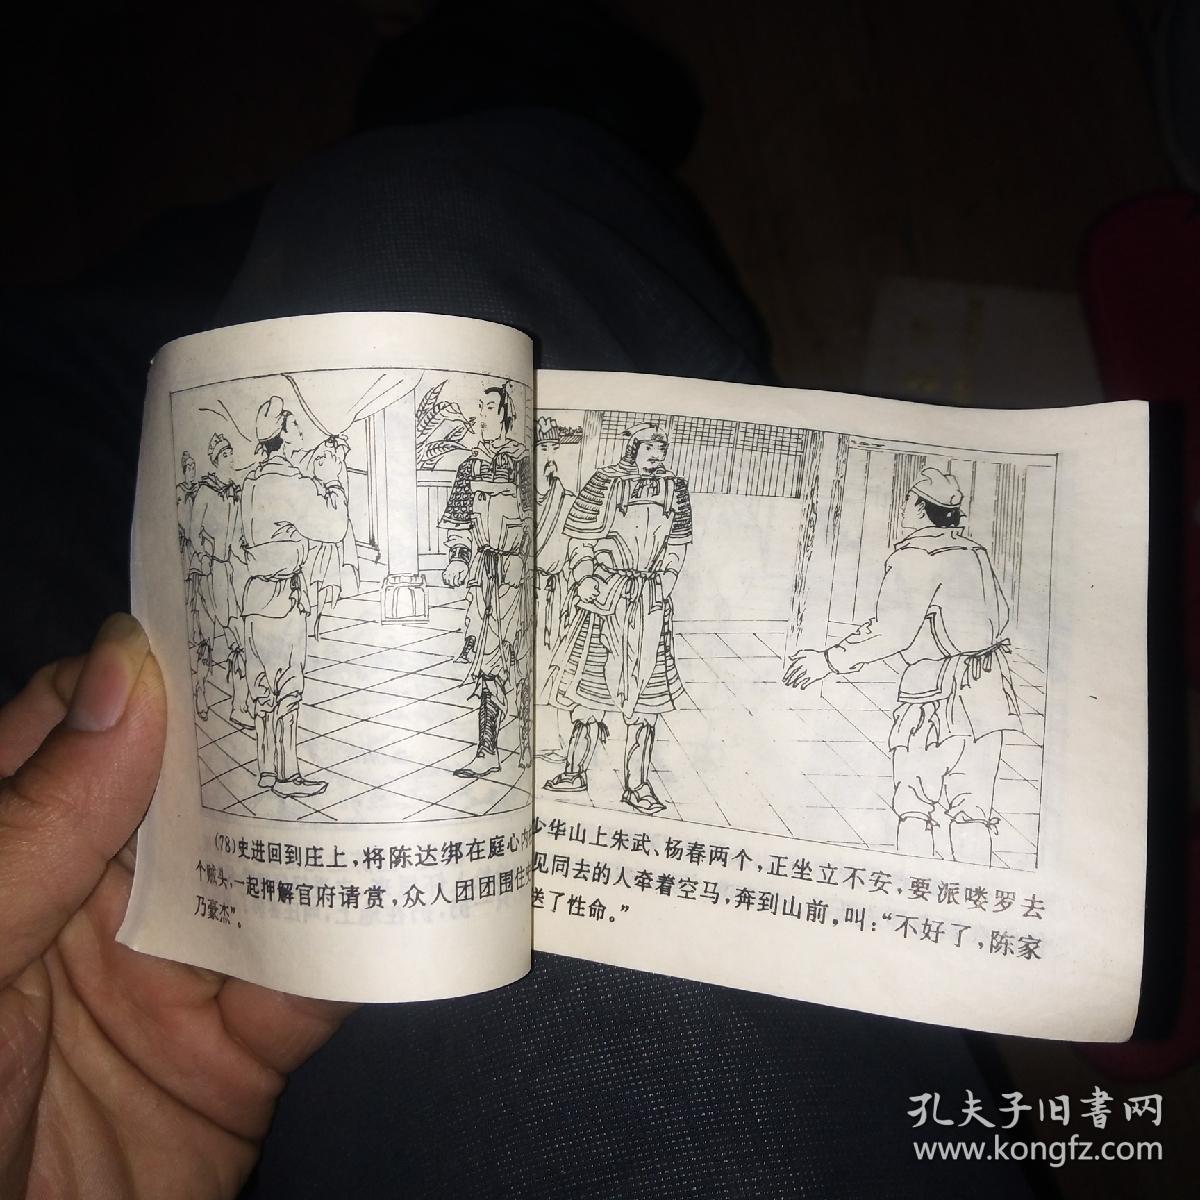 (78)史进回到庄上，将陈达绑在庭心内
个贼头，一起押解官府请赏，众人团团围住
乃豪杰”。
少华山上朱武、杨春两个，正坐立不安，要派喽罗去
见同去的人牵着空马，奔到山前，叫：“不好了，陈家
送了性命。”
孔夫子旧書网
www.kongfz.com